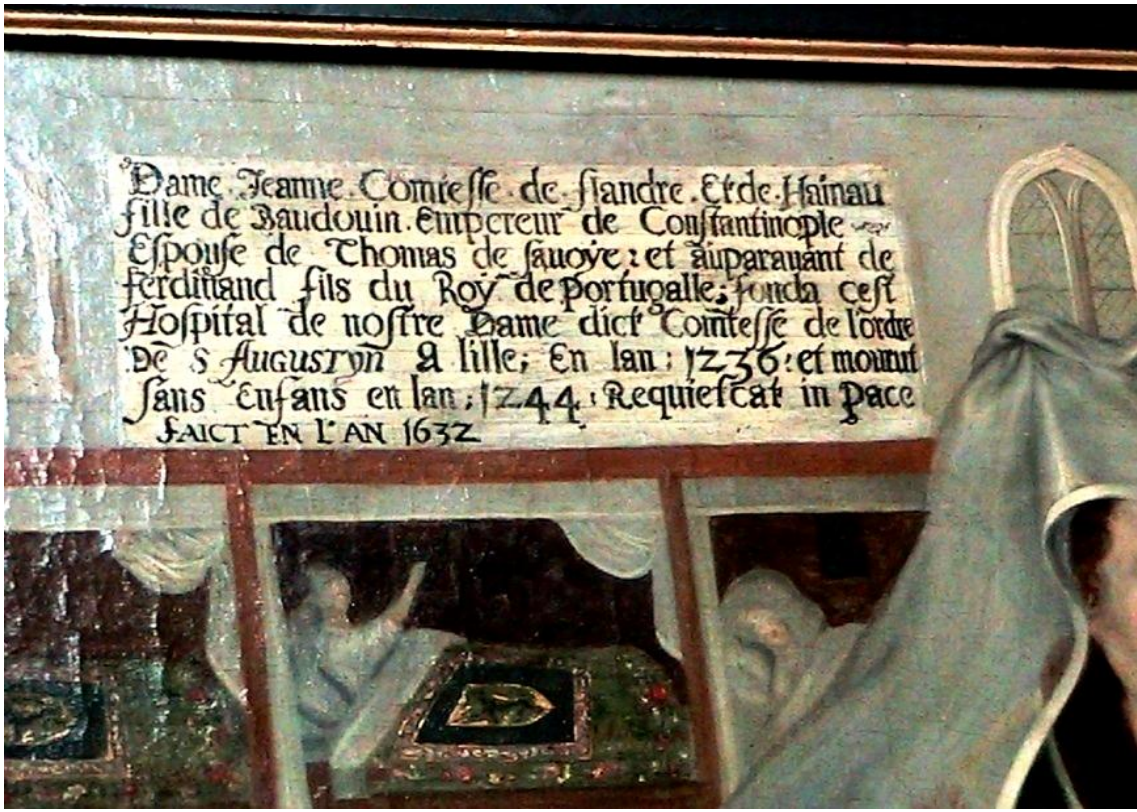 Dame. Jeanne. Comtesse. de. flandre. Et de. Hainau
fille de Baudouin. Empereur de Constantinople
Espouse de Thomas de sauoye: et auparauant de
ferdinand fils du Roy de portugalle; fonda cest
Hospital de nostre Dame dict Comtesse de lordre
De S AUGUSTyn A lille; En lan: 1236: et mourut
sans Enfans en lan: 1244: Requiescat in Pace
FAICT EN L'AN 1632